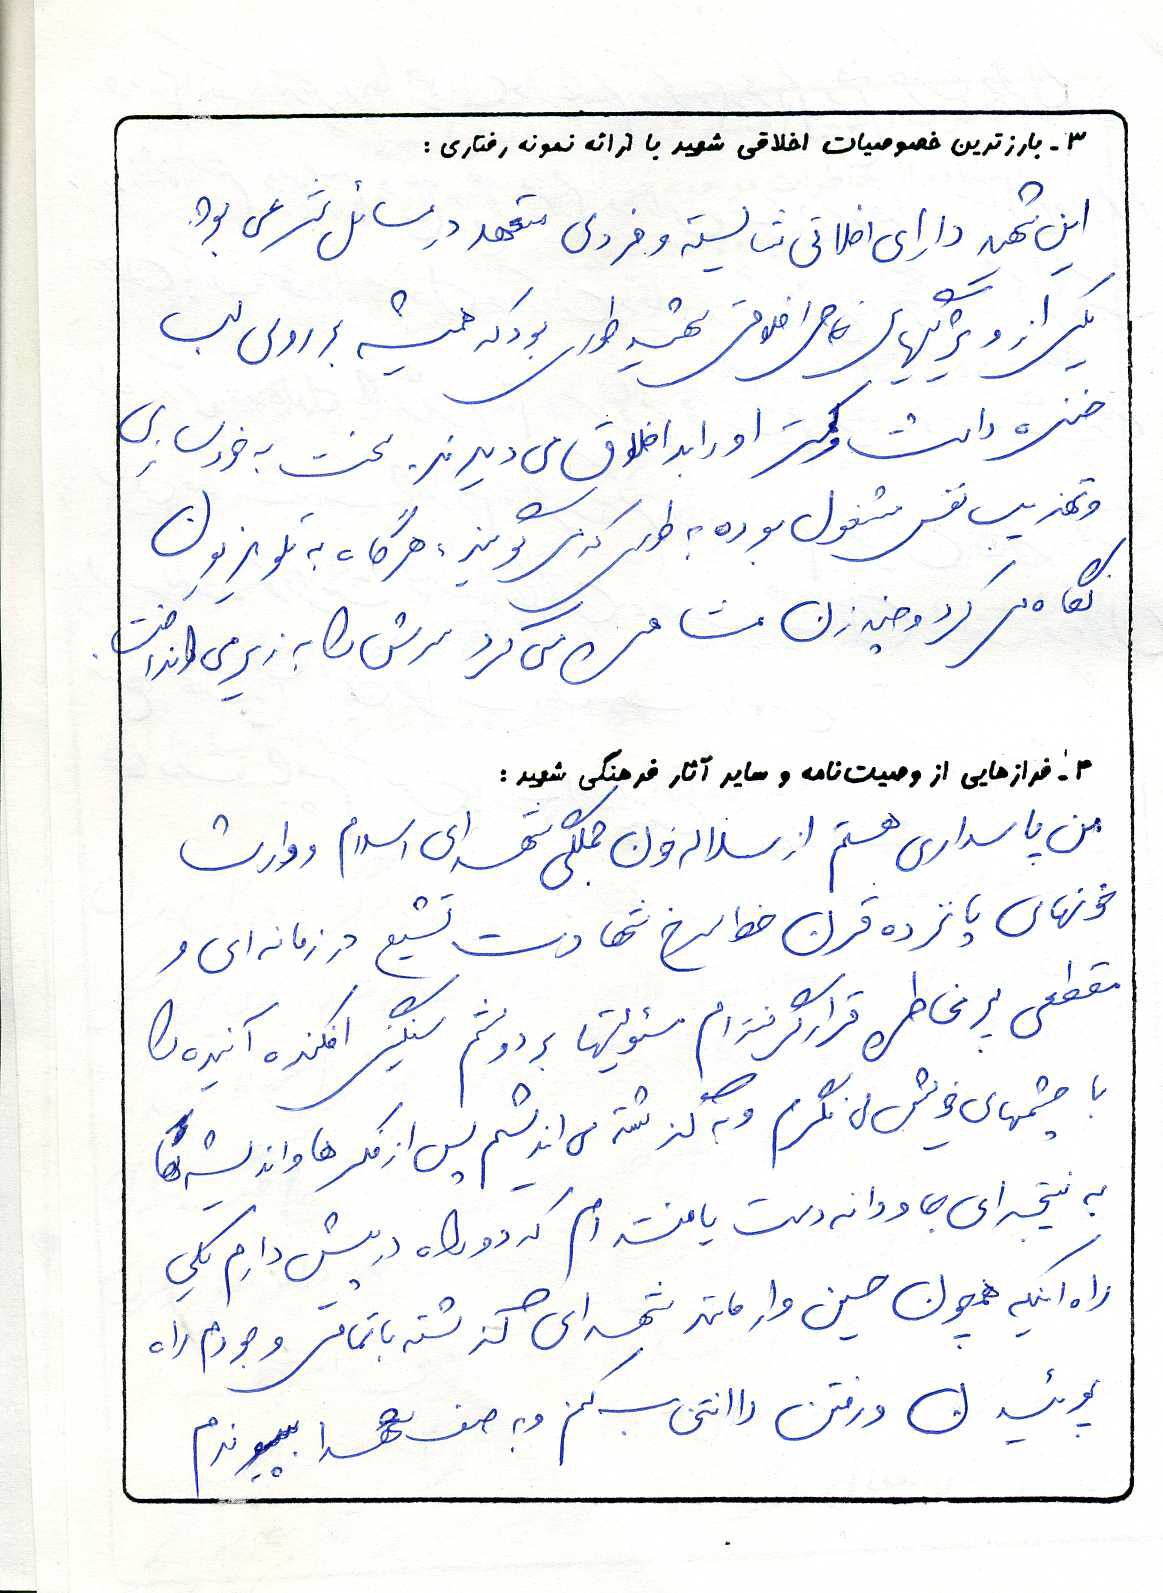 ۳ـ بارزترین خصوصیات اخلاقی شهید با ارائه نمونه رفتاری :
این شهید دارای اخلاقی شایسته و فردی متعهد در مسائل شرعی بود.
یکی از ویژگیهای خاص اخلاقی شهید طوری بود که همیشه بر روی لب
خنده داشت و کمتر او را بد اخلاق می دیدند. سخت به خودسازی
و تهذیب نفس مشغول بوده به طوری که می گویند، هرگاه به تلویزیون
نگاه می کرد و چند زن مشاهده می کرد سرش را به زیر می انداخت.
۴ـ فرازهایی از وصیت‌نامه و سایر آثار فرهنگی شهید :
من پاسداری هستم از سلاله خون جملگی شهدای اسلام و وارث
خونهای پانزده قرن خط سرخ شهادت تشیع در زمانه ای و
مقطعی پر مخاطره قرار گرفته ام مسئولیتها بر دوشم سنگینی افکنده آینده را
با چشمهای خویش می نگرم و به گذشته می اندیشم پس از فکرها و اندیشه ها
به نتیجه ای جاودانه دست یافته ام که دو راه در پیش دارم یکی
راه اینکه همچون حسین وار مانند شهدای گذشته با تمامی وجودم راه
پوئیدن و رفتن را انتخاب کنم و به صف شهدا بپیوندم